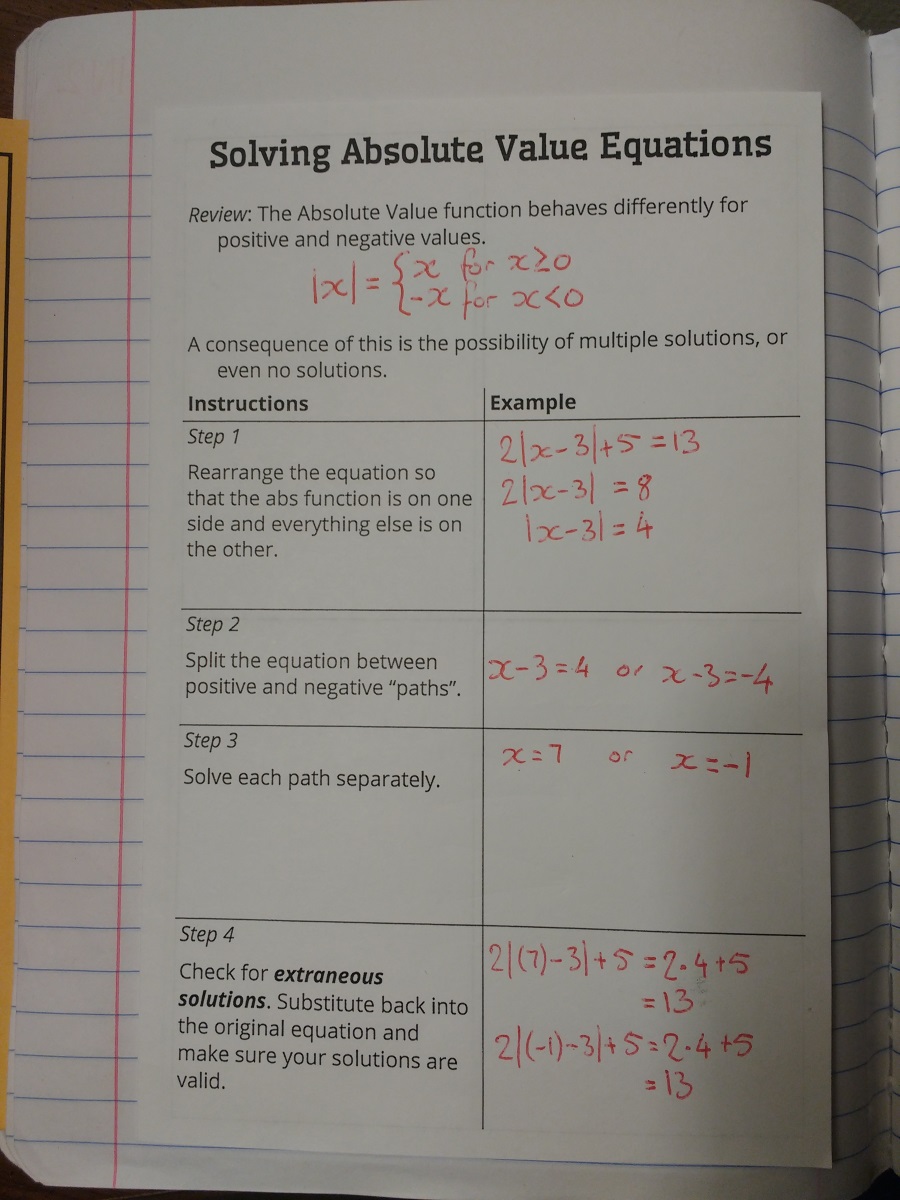 Solving Absolute Value Equations
Review: The Absolute Value function behaves differently for
positive and negative values.
|x| = { x for x≥0
{ -x for x<0
A consequence of this is the possibility of multiple solutions, or
even no solutions.
Instructions
Example
Step 1
Rearrange the equation so
that the abs function is on one
side and everything else is on
the other.
2|x-3|+5 =13
2|x-3| =8
|x-3| = 4
Step 2
Split the equation between
positive and negative “paths”.
x-3=4 or x-3=-4
Step 3
Solve each path separately.
x=7 or x=-1
Step 4
Check for extraneous
solutions. Substitute back into
the original equation and
make sure your solutions are
valid.
2|(7)-3|+5 =2·4+5
=13
2|(-1)-3|+5=2·4+5
=13